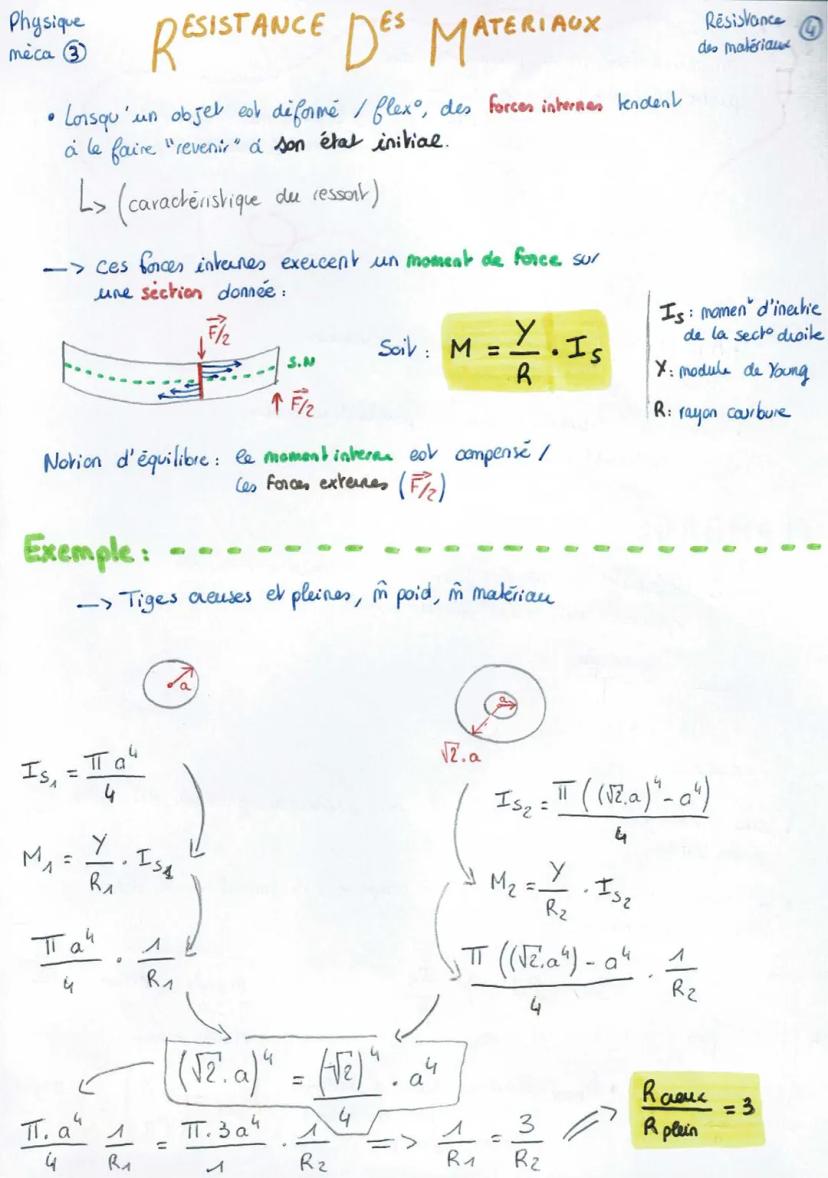 Physique
méca ③
RESISTANCE DES MATERIAUX
Résistance
des matériaux
④
• Lorsqu'un objet est déformé / flex°, des forces internes tendent
à le faire "revenir" à son état initial.
↳ (caractéristique du ressort)
—> ces forces internes exercent un moment de force sur
une section donnée :
F/2
S.N
F/2
Soit : M = Y/R . Is
Is : momen^t d'inertie
de la sect° droite
Y : module de Young
R : rayon courbure
Notion d'équilibre : le moment interne est compensé /
les forces externes (F/2)
Exemple :
—> Tiges creuses et pleines, m̂ poid, m̂ matériau
a
a
√2.a
Is₁ = π a⁴/4
Is₂ = π ((√2.a)⁴ - a⁴)/4
M₁ = Y/R₁ . Is₁
M₂ = Y/R₂ . Is₂
π a⁴/4 . 1/R₁
π ((√2.a⁴) - a⁴/4 . 1/R₂
(√2.a)⁴ = (√2)⁴/4 . a⁴
π.a⁴/4 1/R₁ = π.3a⁴/1 . 1/R₂ => 1/R₁ = 3/R₂
R creux/R plein = 3